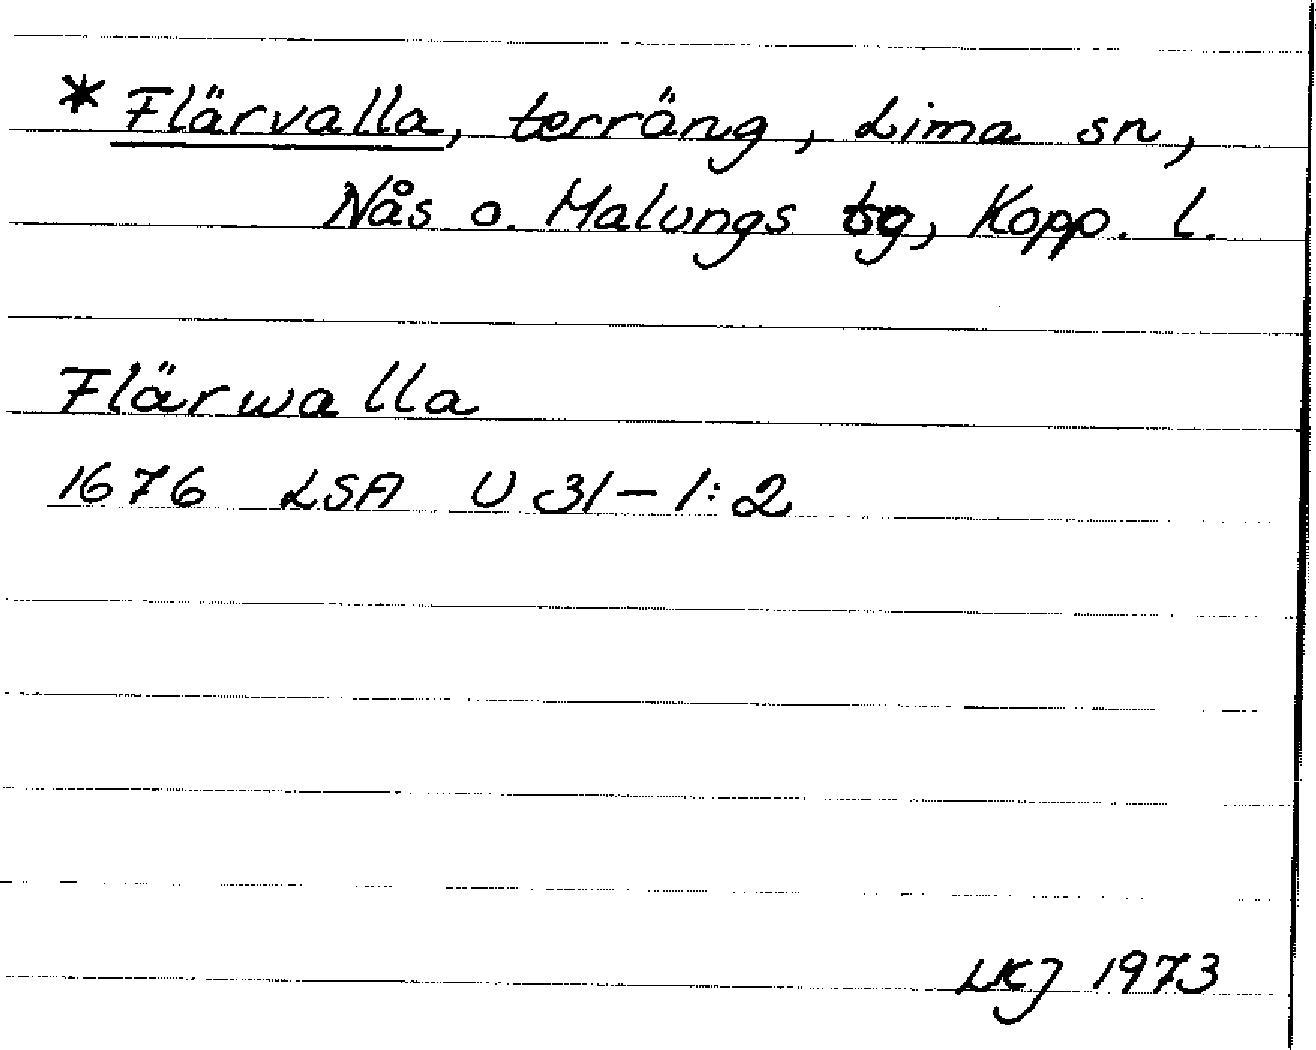 * Flärvalla, terräng, Lima sn,
Nås o. Malungs tg, Kopp. l.
Flärwalla
1676 LSA U 31-1:2
LKJ 1973